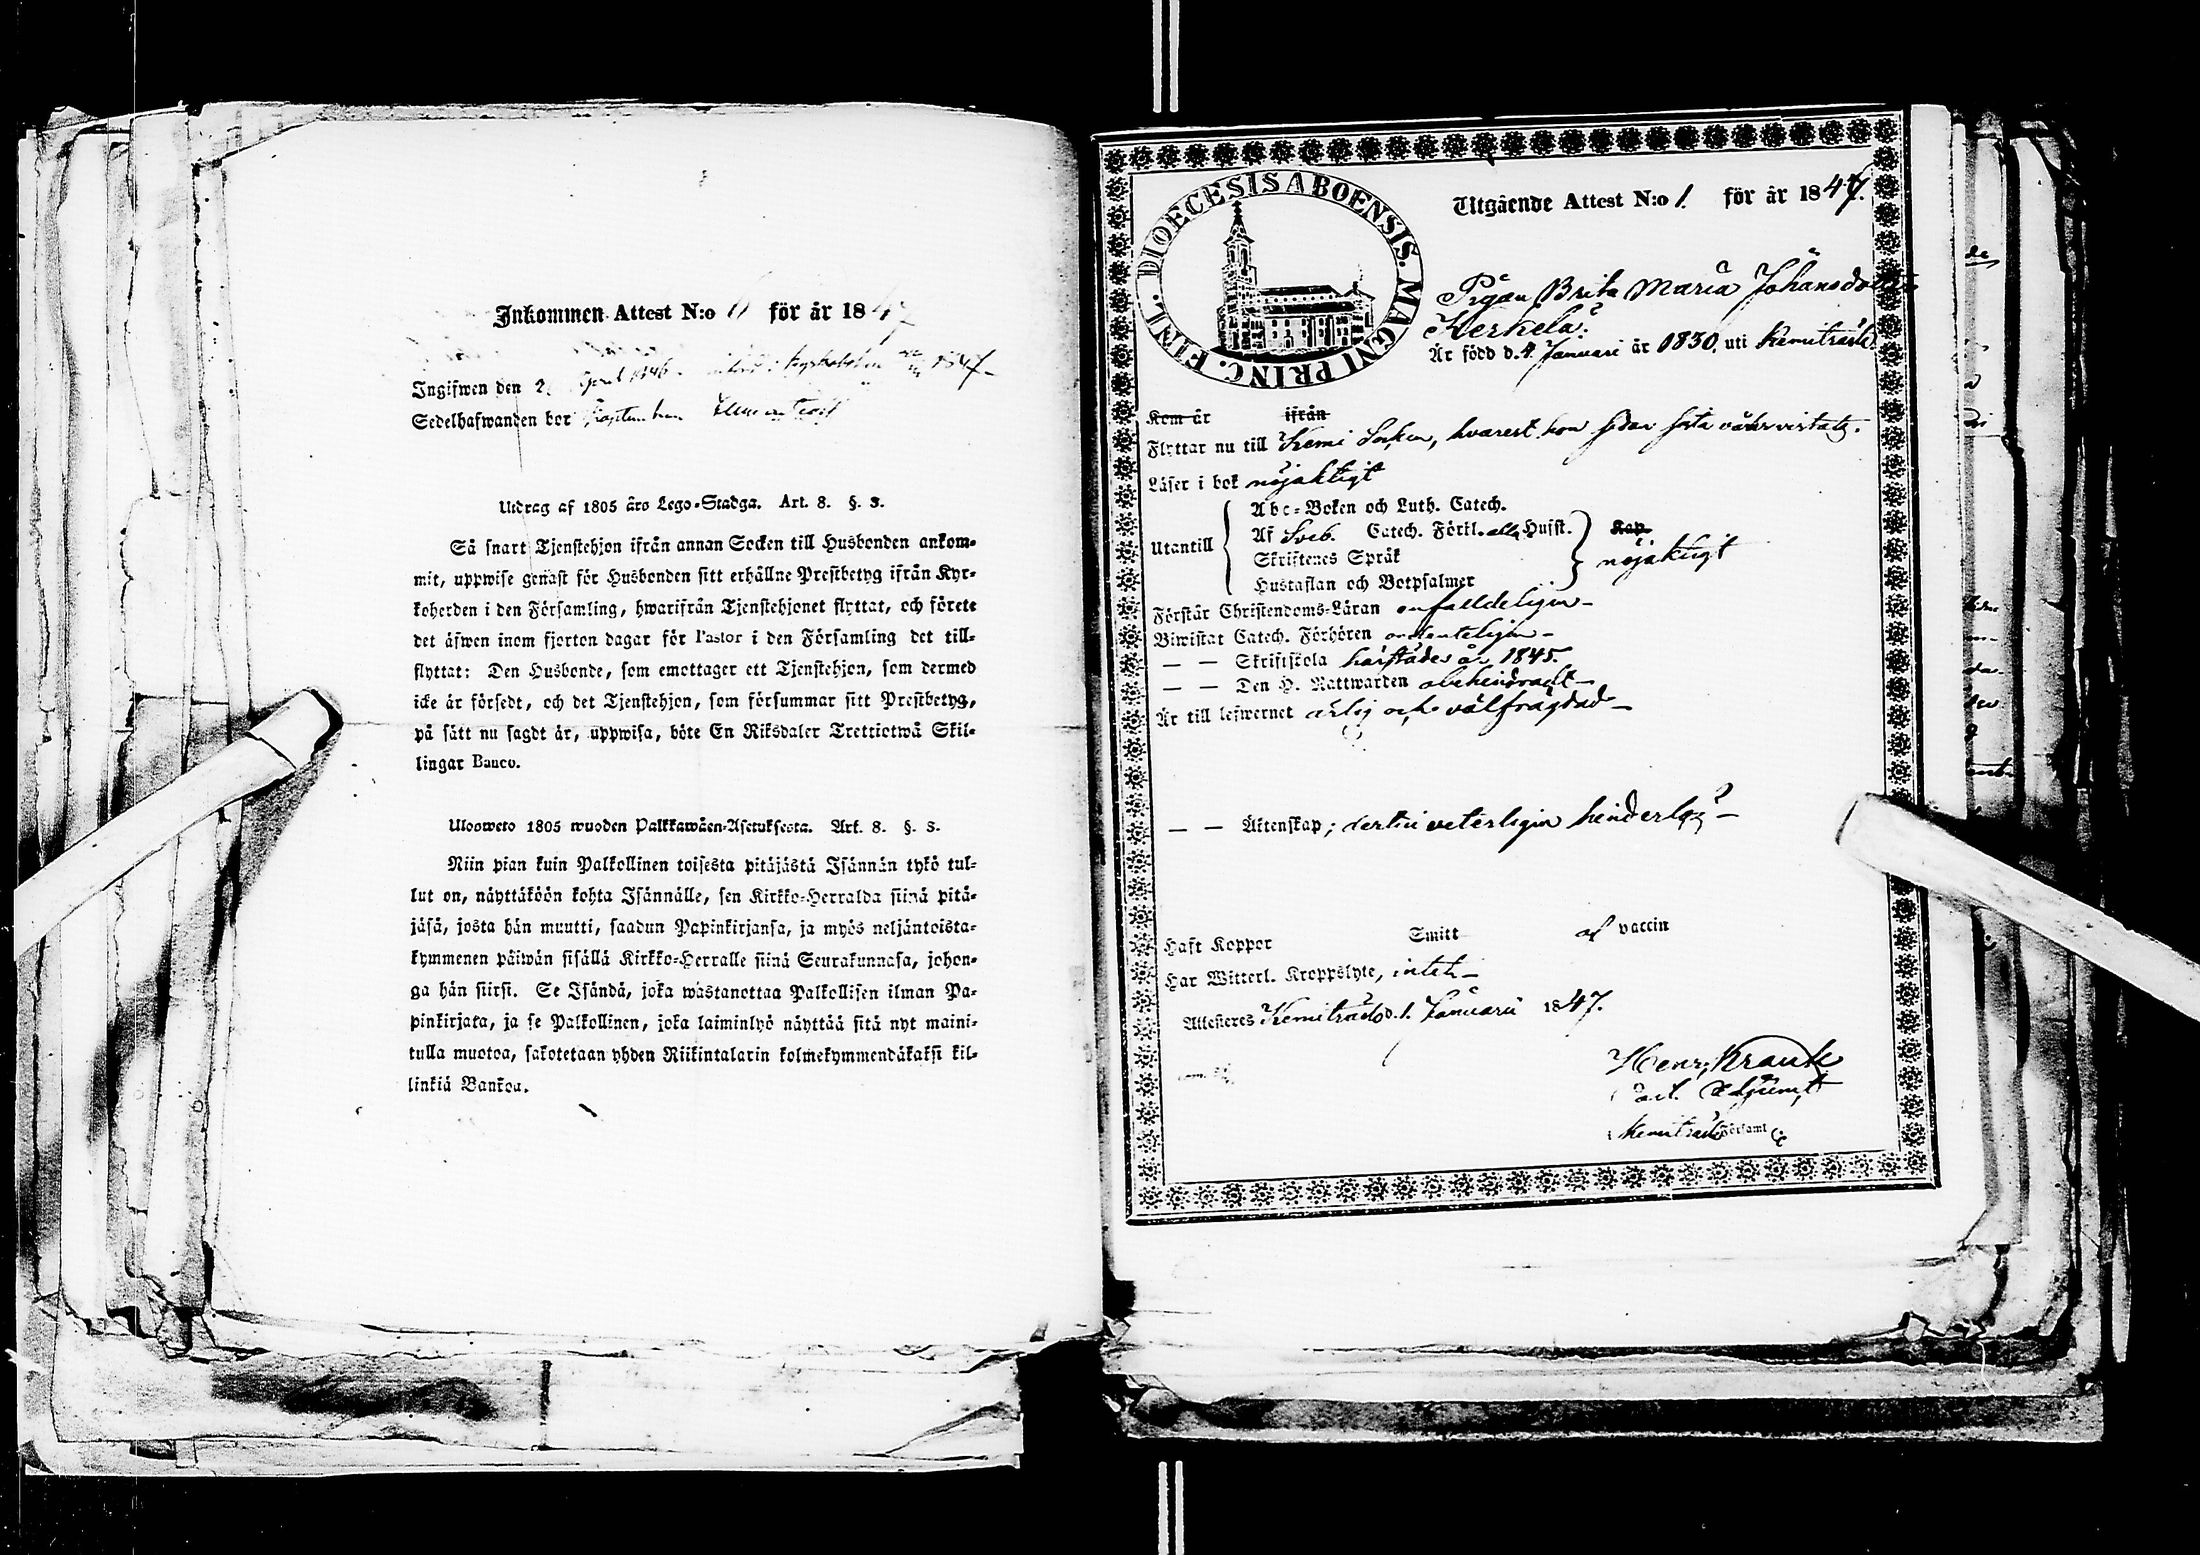 Inkommen Attest N:o för år 184
Ingifwen den April 1847
Sedelhafwanden bor
Utdrag af 1805 års Lego-Stadga. Art. 8. §. 3.
Så snart Tjenstehjon ifrån annan Socken till Husbonden ankom-
mit, uppwise genast för Husbonden sitt erhållne Prestbetyg ifrån Kyr-
koherden i den Församling, hwarifrån Tjenstehjonet flyttat, och förete
det äfwen inom fjorton dagar för Pastor i den Församling det till-
flyttat: Den Husbonde, som emottager ett Tjenstehjon, som dermed
icke är försedt, och det Tjenstehjon, som försummar sitt Prestbetyg,
på sätt nu sagdt är, uppwisa, böte En Riksdaler Trettiotwå Skil-
lingar Banco.
Ulosweto 1805 wuoden Palkkawäen-Asetuksesta. Art. 8. §. 3.
Niin pian kuin Palkollinen toisesta pitäjästä Isännän tykö tul-
lut on, näyttäköön kohta Isännälle, sen Kirkko-Herralda siinä pitä-
jäsä, josta hän muutti, saadun Papinkirjansa, ja myös neljäntoista-
kymmenen päiwän sisällä Kirkko-Herralle siinä Seurakunnasa, johon-
ga hän siirsi. Se Isändä, joka wastanottaa Palkollisen ilman Pa-
pinkirjata, ja se Palkollinen, joka laiminlyö näyttää sitä nyt maini-
tulla muotoa, sakotetaan yhden Riikintalarin kolmekymmendäkaksi kil-
linkiä Bankoa.
DIOECESIS ABOENSIS. MAGNI PRINC. FINL.
Utgående Attest N:o 1. för år 1847.
Pigan Brita Maria Johansdotter
Kerkelä.
Är född d. 4 Januari år 1830, uti Kemiträsk
Kom år ifrån
Flyttar nu till Kemi Socken, hvarest hon sedan sista våhr vistats.
Läser i bok nöjaktigt
Utantill
Abc-Boken och Luth. Catech.
Af Sveb. Catech. Förkl. alla Hufst. Kap.
Skriftenes Språk nöjaktigt
Hustaflan och Botpsalmer
Förstår Christendoms-Läran enfalldeligen –
Biwistat Catech. Förhören ordenteligen –
— — Skriftskola härstädes år 1845.
— — Den H. Nattwarden obehindradt –
Är till lefwernet ärlig och välfrägdad –
— — Äktenskap; vetterligen hinderlös –
Haft Koppor Smitt af vaccin
Har Witterl. Kroppslyte, intet –
Attesteres Kemiträsk d. 1. Januarii 1847.
Henr. Krank
Past. Adjunct
Kemiträsk Församl